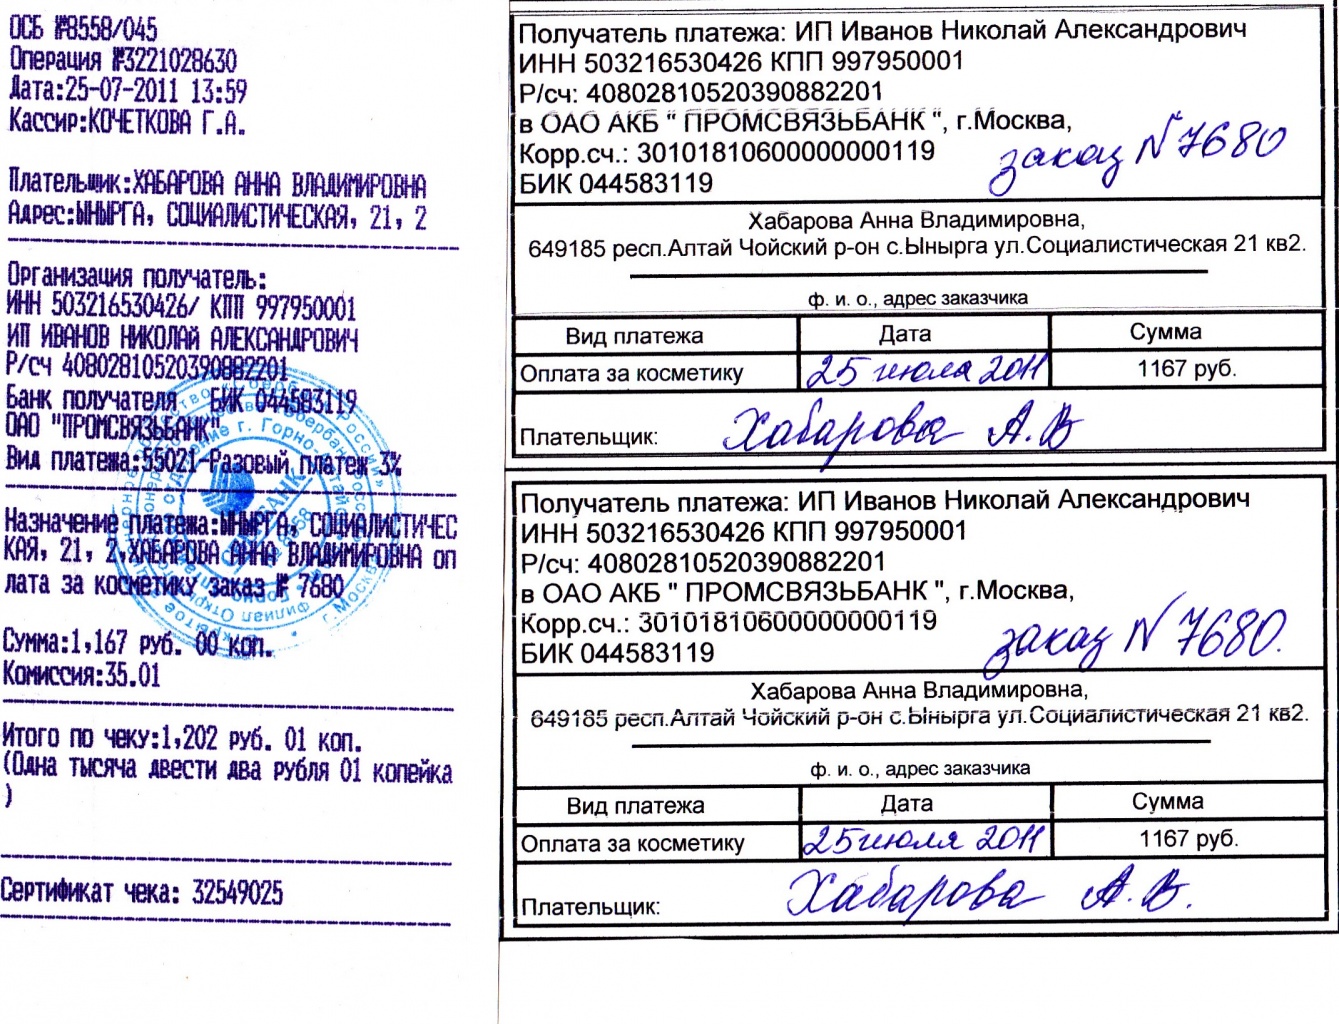 ОСБ №8558/045
Операция №3221028630
Дата:25-07-2011 13:59
Кассир:КОЧЕТКОВА Г.А.
Плательщик:ХАБАРОВА АННА ВЛАДИМИРОВНА
Адрес:ЫНЫРГА, СОЦИАЛИСТИЧЕСКАЯ, 21, 2
Организация получатель:
ИНН 503216530426/ КПП 997950001
ИП ИВАНОВ НИКОЛАЙ АЛЕКСАНДРОВИЧ
Р/сч 40802810520390882201
Банк получателя БИК 044583119
ОАО "ПРОМСВЯЗЬБАНК"
Вид платежа:55021-Разовый платеж 3%
Назначение платежа:ЫНЫРГА, СОЦИАЛИСТИЧЕС
КАЯ, 21, 2,ХАБАРОВА АННА ВЛАДИМИРОВНА оп
лата за косметику заказ № 7680
Сумма:1,167 руб. 00 коп.
Комиссия:35.01
Итого по чеку:1,202 руб. 01 коп.
(Одна тысяча двести два рубля 01 копейка
)
Сертификат чека: 32549025
СБЕРБАНК
8558
Получатель платежа: ИП Иванов Николай Александрович
ИНН 503216530426 КПП 997950001
Р/сч: 40802810520390882201
в ОАО АКБ " ПРОМСВЯЗЬБАНК ", г.Москва,
Корр.сч.: 30101810600000000119
заказ N 7680
БИК 044583119
Хабарова Анна Владимировна,
649185 респ.Алтай Чойский р-он с.Ынырга ул.Социалистическая 21 кв2.
ф. и. о., адрес заказчика
Вид платежа Дата Сумма
Оплата за косметику 25 июля 2011 1167 руб.
Плательщик: Хабарова А.В
Получатель платежа: ИП Иванов Николай Александрович
ИНН 503216530426 КПП 997950001
Р/сч: 40802810520390882201
в ОАО АКБ " ПРОМСВЯЗЬБАНК ", г.Москва,
Корр.сч.: 30101810600000000119
заказ N 7680.
БИК 044583119
Хабарова Анна Владимировна,
649185 респ.Алтай Чойский р-он с.Ынырга ул.Социалистическая 21 кв2.
ф. и. о., адрес заказчика
Вид платежа Дата Сумма
Оплата за косметику 25 июля 2011 1167 руб.
Плательщик: Хабарова А.В.